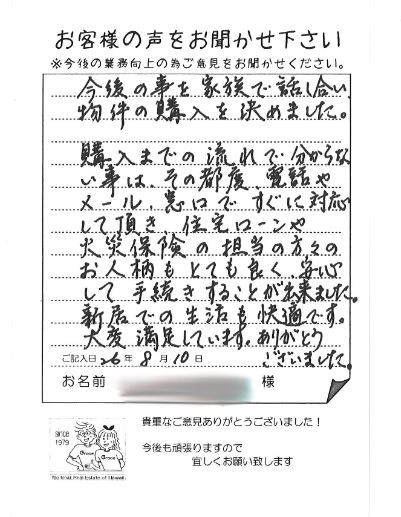 お客様の声をお聞かせ下さい
※今後の業務向上の為ご意見をお聞かせください。
今後の事を家族で話し合い、
物件の購入を決めました。
購入までの流れで分からな
い事は、その都度、電話や
メール、窓口ですぐに対応
して頂き、住宅ローンや
火災保険の担当の方々の
お人柄もとても良く、安心
して手続きすることが出来ました。
新居での生活も快適です。
大変満足しています。ありがとう
ございました。
ご記入日 26年 8月 10日
お名前 様
貴重なご意見ありがとうございました！
今後も頑張りますので
宜しくお願い致します
since
1979
Grace
Grace
National Real Estate of Hawaii